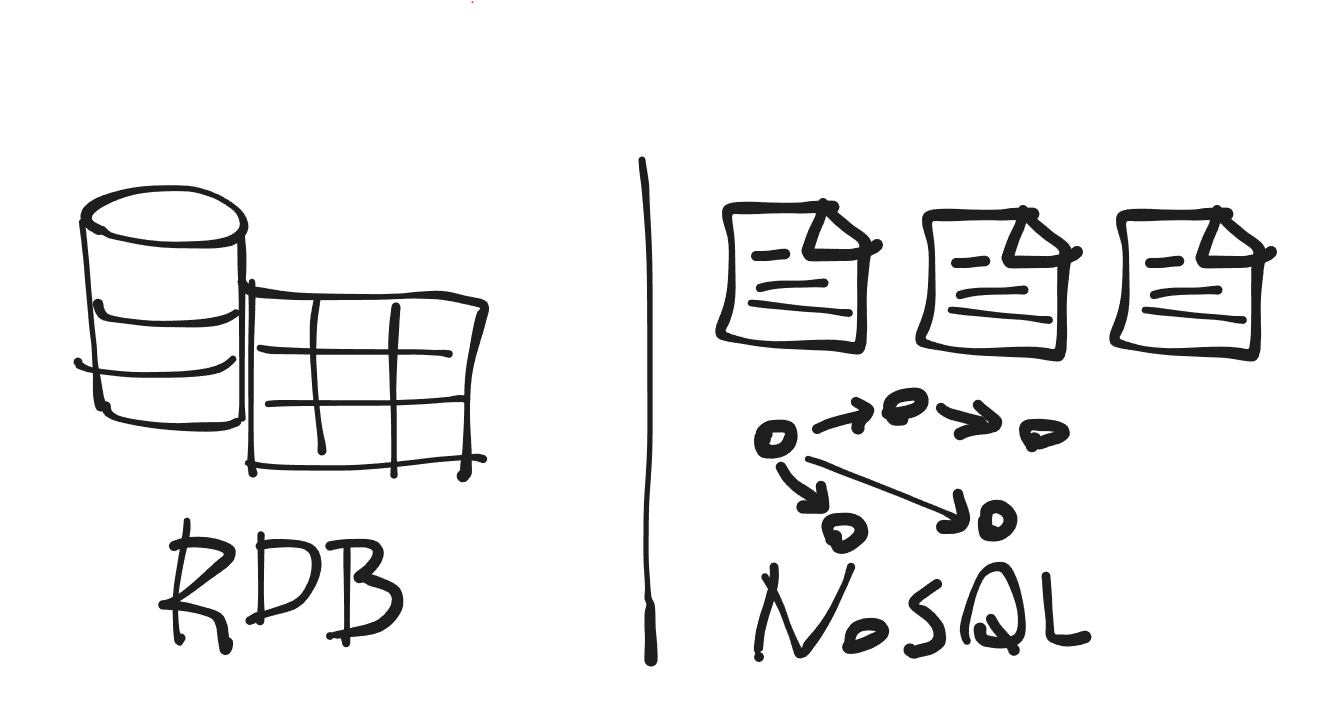 RDB
NoSQL